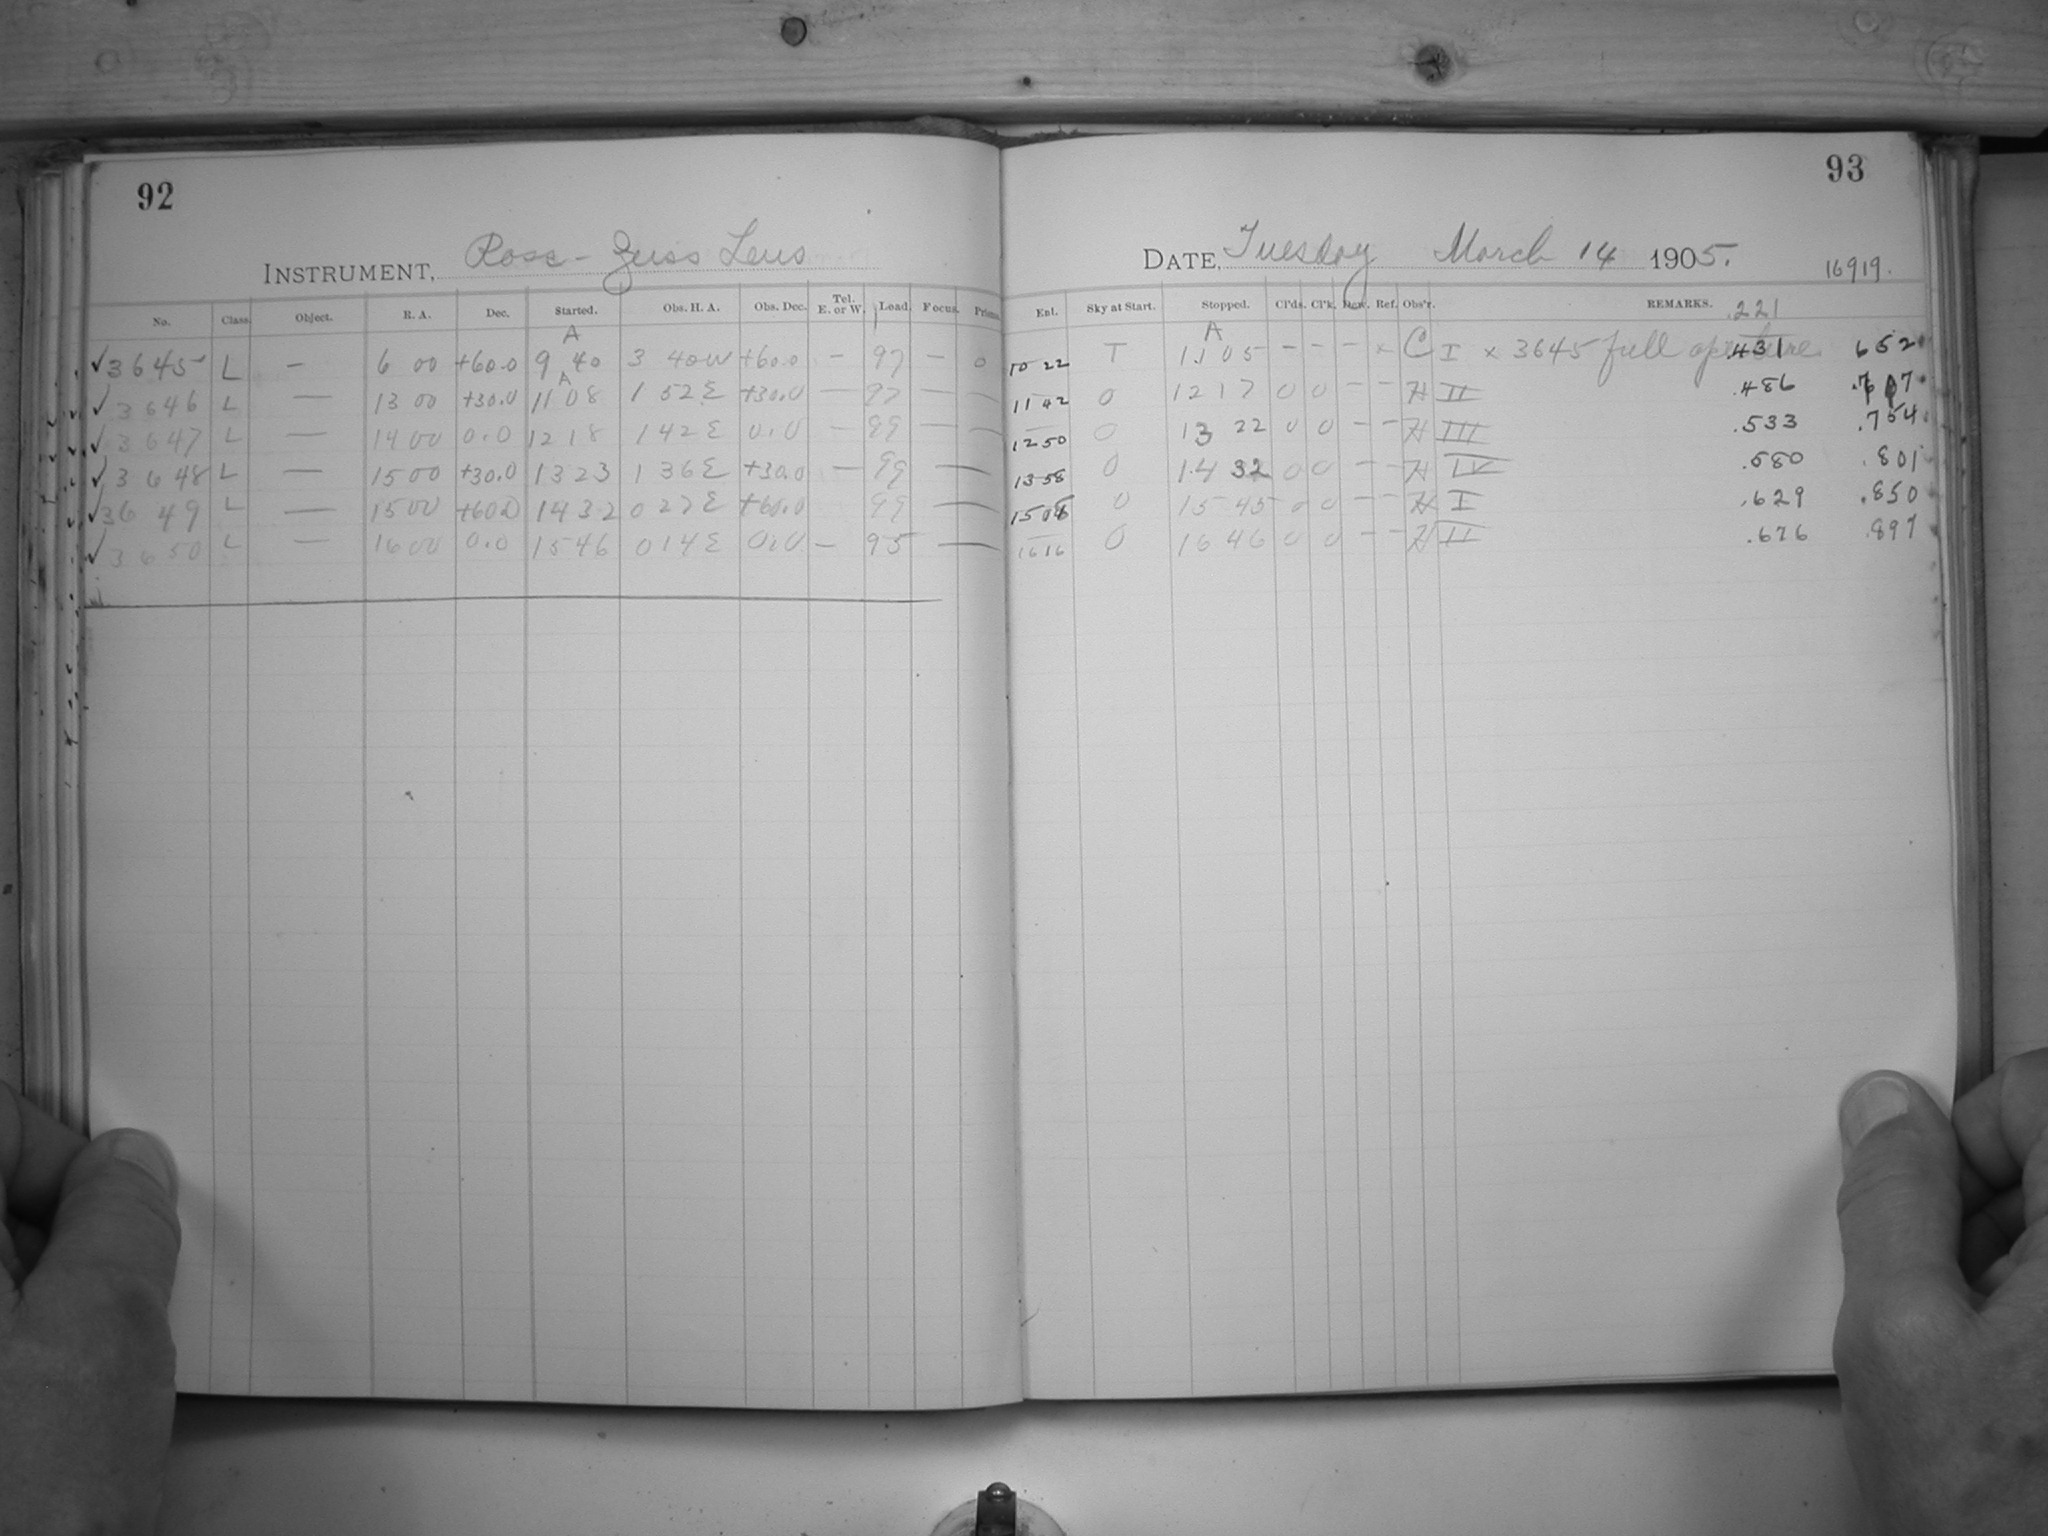 92
INSTRUMENT, Ross-Zeiss Lens
No. Class. Object. R. A. Dec. Started. Obs. H. A. Obs. Dec. Tel. E. or W. Load. Focus. Prisms.
A
✓3645 L — 6 00 +60.0 9 40 3 40W +60.0 — 97 — 0
A
✓3646 L — 13 00 +30.0 11 08 1 52E +30.0 — 97 — —
✓3647 L — 14 00 0.0 12 18 1 42E 0.0 — 99 — —
✓3648 L — 15 00 +30.0 13 23 1 36E +30.0 — 99 —
✓3649 L — 15 00 +60.0 14 32 0 27E +60.0 99 —
✓3650 L — 16 00 0.0 15 46 0 14E 0.0 — 95 —
93
DATE, Tuesday March 14 1905.
16919.
Ent. Sky at Start. Stopped. Cl'ds. Cl'k. Dew. Ref. Obs'r. REMARKS. .221
A
10 22 T 11 05 - - - x C I x 3645 full aperture .431 652
11 42 0 12 17 0 0 - - H II .486
12 50 0 13 22 0 0 - - H III .533 .754
13 58 0 14 32 0 0 - - H IV .580 .801
15 08 0 15 45 0 0 - - H I .629 .850
16 16 0 16 46 0 0 - - H II .676 .897